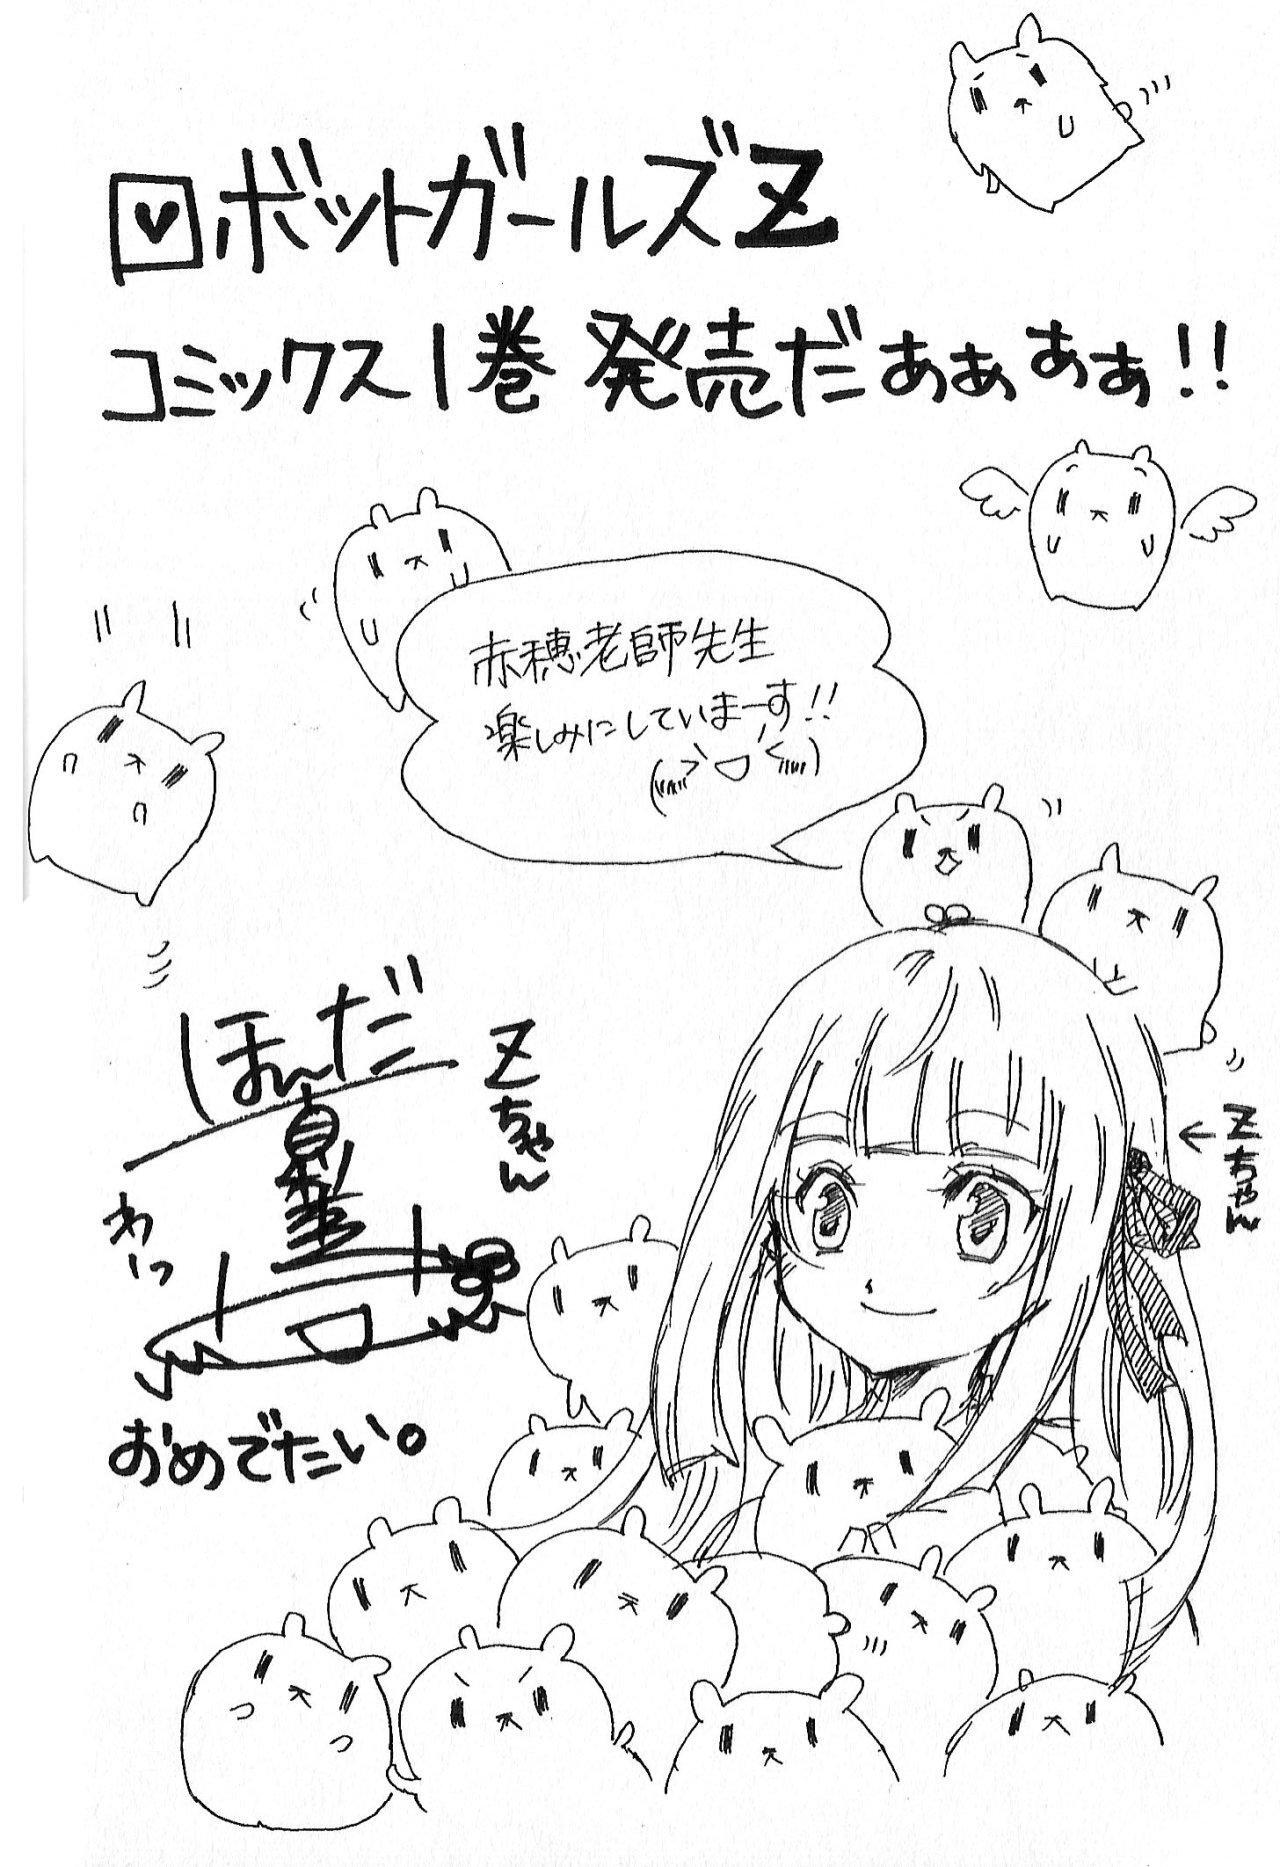 ロボットガールズZ
コミックス1巻 発売だぁぁぁぁ!!
赤穂老師先生
楽しみにしていまーす!!
ほんだ
Zちゃん
←Zちゃん
わーっ
おめでたい。